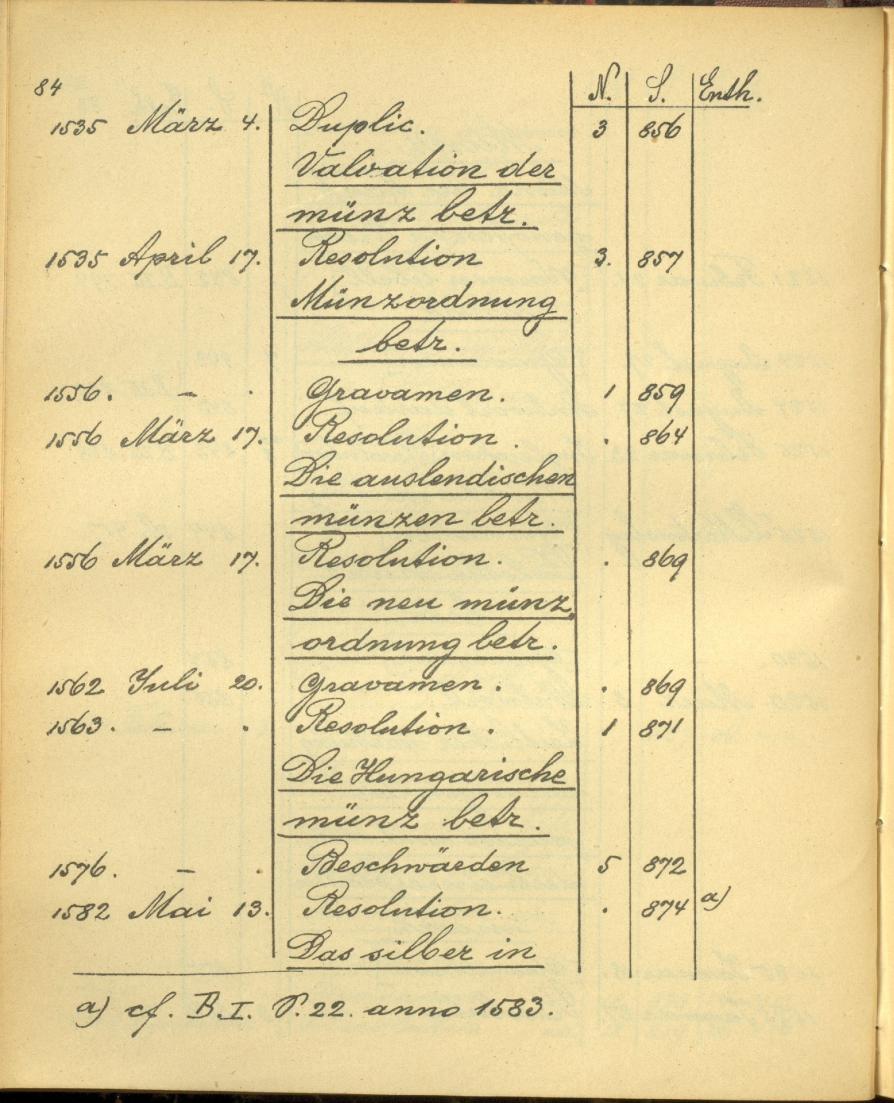 84
N. S. Enth.
1535 März 4. Duplic. 3 856
Valvation der
münz betr.
1535 April 17. Resolution 3. 857
Münzordnung
betr.
1556. – . Gravamen. 1 859
1556 März 17. Resolution. . 864
Die auslendischen
münzen betr.
1556 März 17. Resolution. . 869
Die neu münz
ordnung betr.
1562 Juli 20. Gravamen. . 869
1563. – . Resolution. 1 871
Die Hungarische
münz betr.
1576. – . Beschwärden 5 872
1582 Mai 13. Resolution. . 874 a)
Das silber in
a) cf. B. I. S. 22. anno 1583.